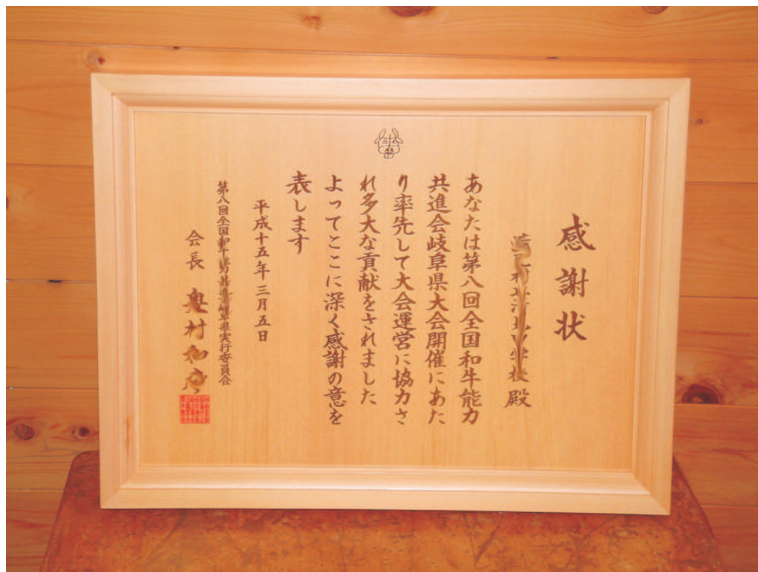 感謝状
殿
あなたは第八回全国和牛能力
共進会岐阜県大会開催にあた
り率先して大会運営に協力さ
れ多大な貢献をされました
よってここに深く感謝の意を
表します
平成十五年三月五日
第八回全国和牛能力共進会岐阜県実行委員会
会長 奥村和彦